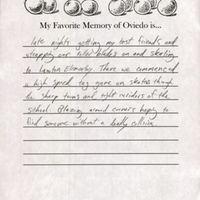 My Favorite Memory of Oviedo is...
late nights getting my best friends and
strapping our roller blades on and skating
to Lawton Elementary. There we commenced
a high speed tag game on skates through
the sharp turns and tight corridors of the
school. Blazing around corners hoping to
find someone without a deadly collision.